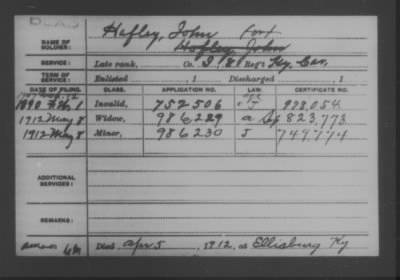 DEAD
Hafley, John
NAME OF SOLDIER: Hafley, John
SERVICE: Late rank, Co. I, 8 Reg't Ky. Cav.
TERM OF SERVICE: Enlisted , 1 Discharged , 1
DATE OF FILING. CLASS. APPLICATION NO. LAW. CERTIFICATE NO.
1890 1 Invalid, 752,506 J 978,054
1912 May 8 Widow, 986,229 a 823,773
1912 May 8 Minor, 986,230 J 749,774
ADDITIONAL SERVICES:
REMARKS:
Died Apr 5, 1912, at Ellisburg Ky